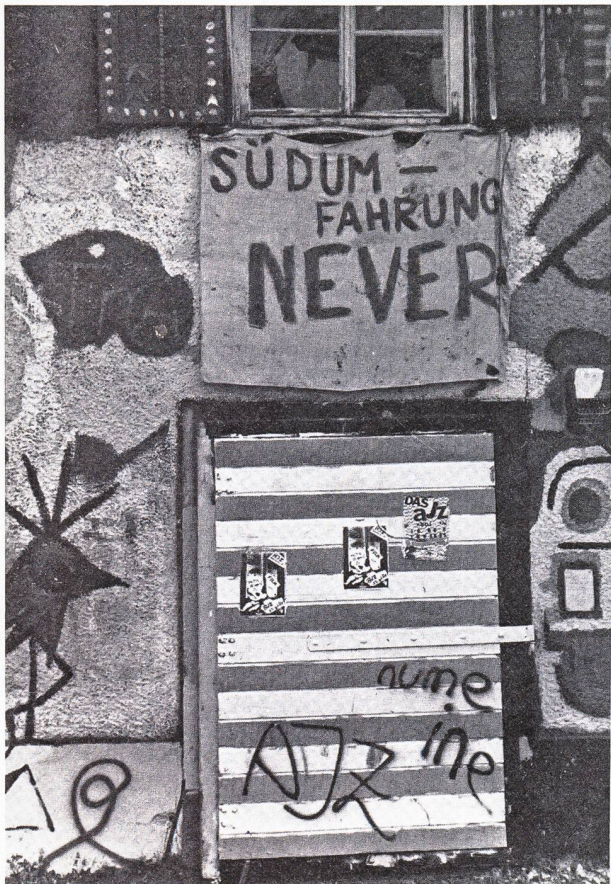 SÜDUM –
FAHRUNG
NEVER
DAS
aJZ
nume
ine
AJZ